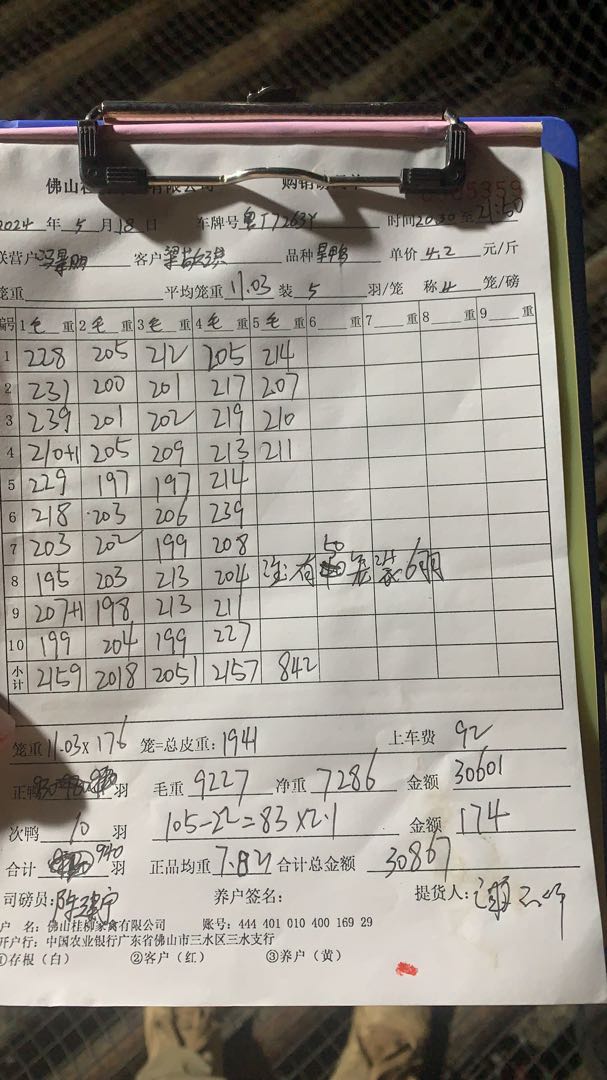 佛山桂 有限公司 购销
2024 年 5 月 18 日 车牌号 粤T7263Y 时间 20:30 至 21:50
联营户 客户 品种 单价 4.2 元/斤
笼重 平均笼重 11.03 装 5 羽/笼 称 4 笼/磅
编号 1 毛 重 2 毛 重 3 毛 重 4 毛 重 5 毛 重 6 重 7 重 8 重 9 重
1 228 205 212 205 214
2 231 200 201 217 207
3 239 201 202 219 210
4 210+1 205 209 213 211
5 229 197 197 214
6 218 203 206 239
7 203 202 199 208
8 195 203 213 204 注:有 50 笼 装 6羽
9 207+1 198 213 211
10 199 204 199 227
小计 2159 2018 2051 2157 842
笼重 11.03 x 176 笼=总皮重: 1941 上车费 92
正鸭 羽 毛重 9227 净重 7286 金额 30601
次鸭 10 羽 105-22=83 x2.1 金额 174
合计 940 羽 正品均重 7.82 合计总金额 30867
司磅员: 养户签名: 提货人:
户 名: 佛山桂柳家禽有限公司 账号: 444 401 010 400 169 29
开户行: 中国农业银行广东省佛山市三水区三水支行
①存根(白) ②客户(红) ③养户(黄)